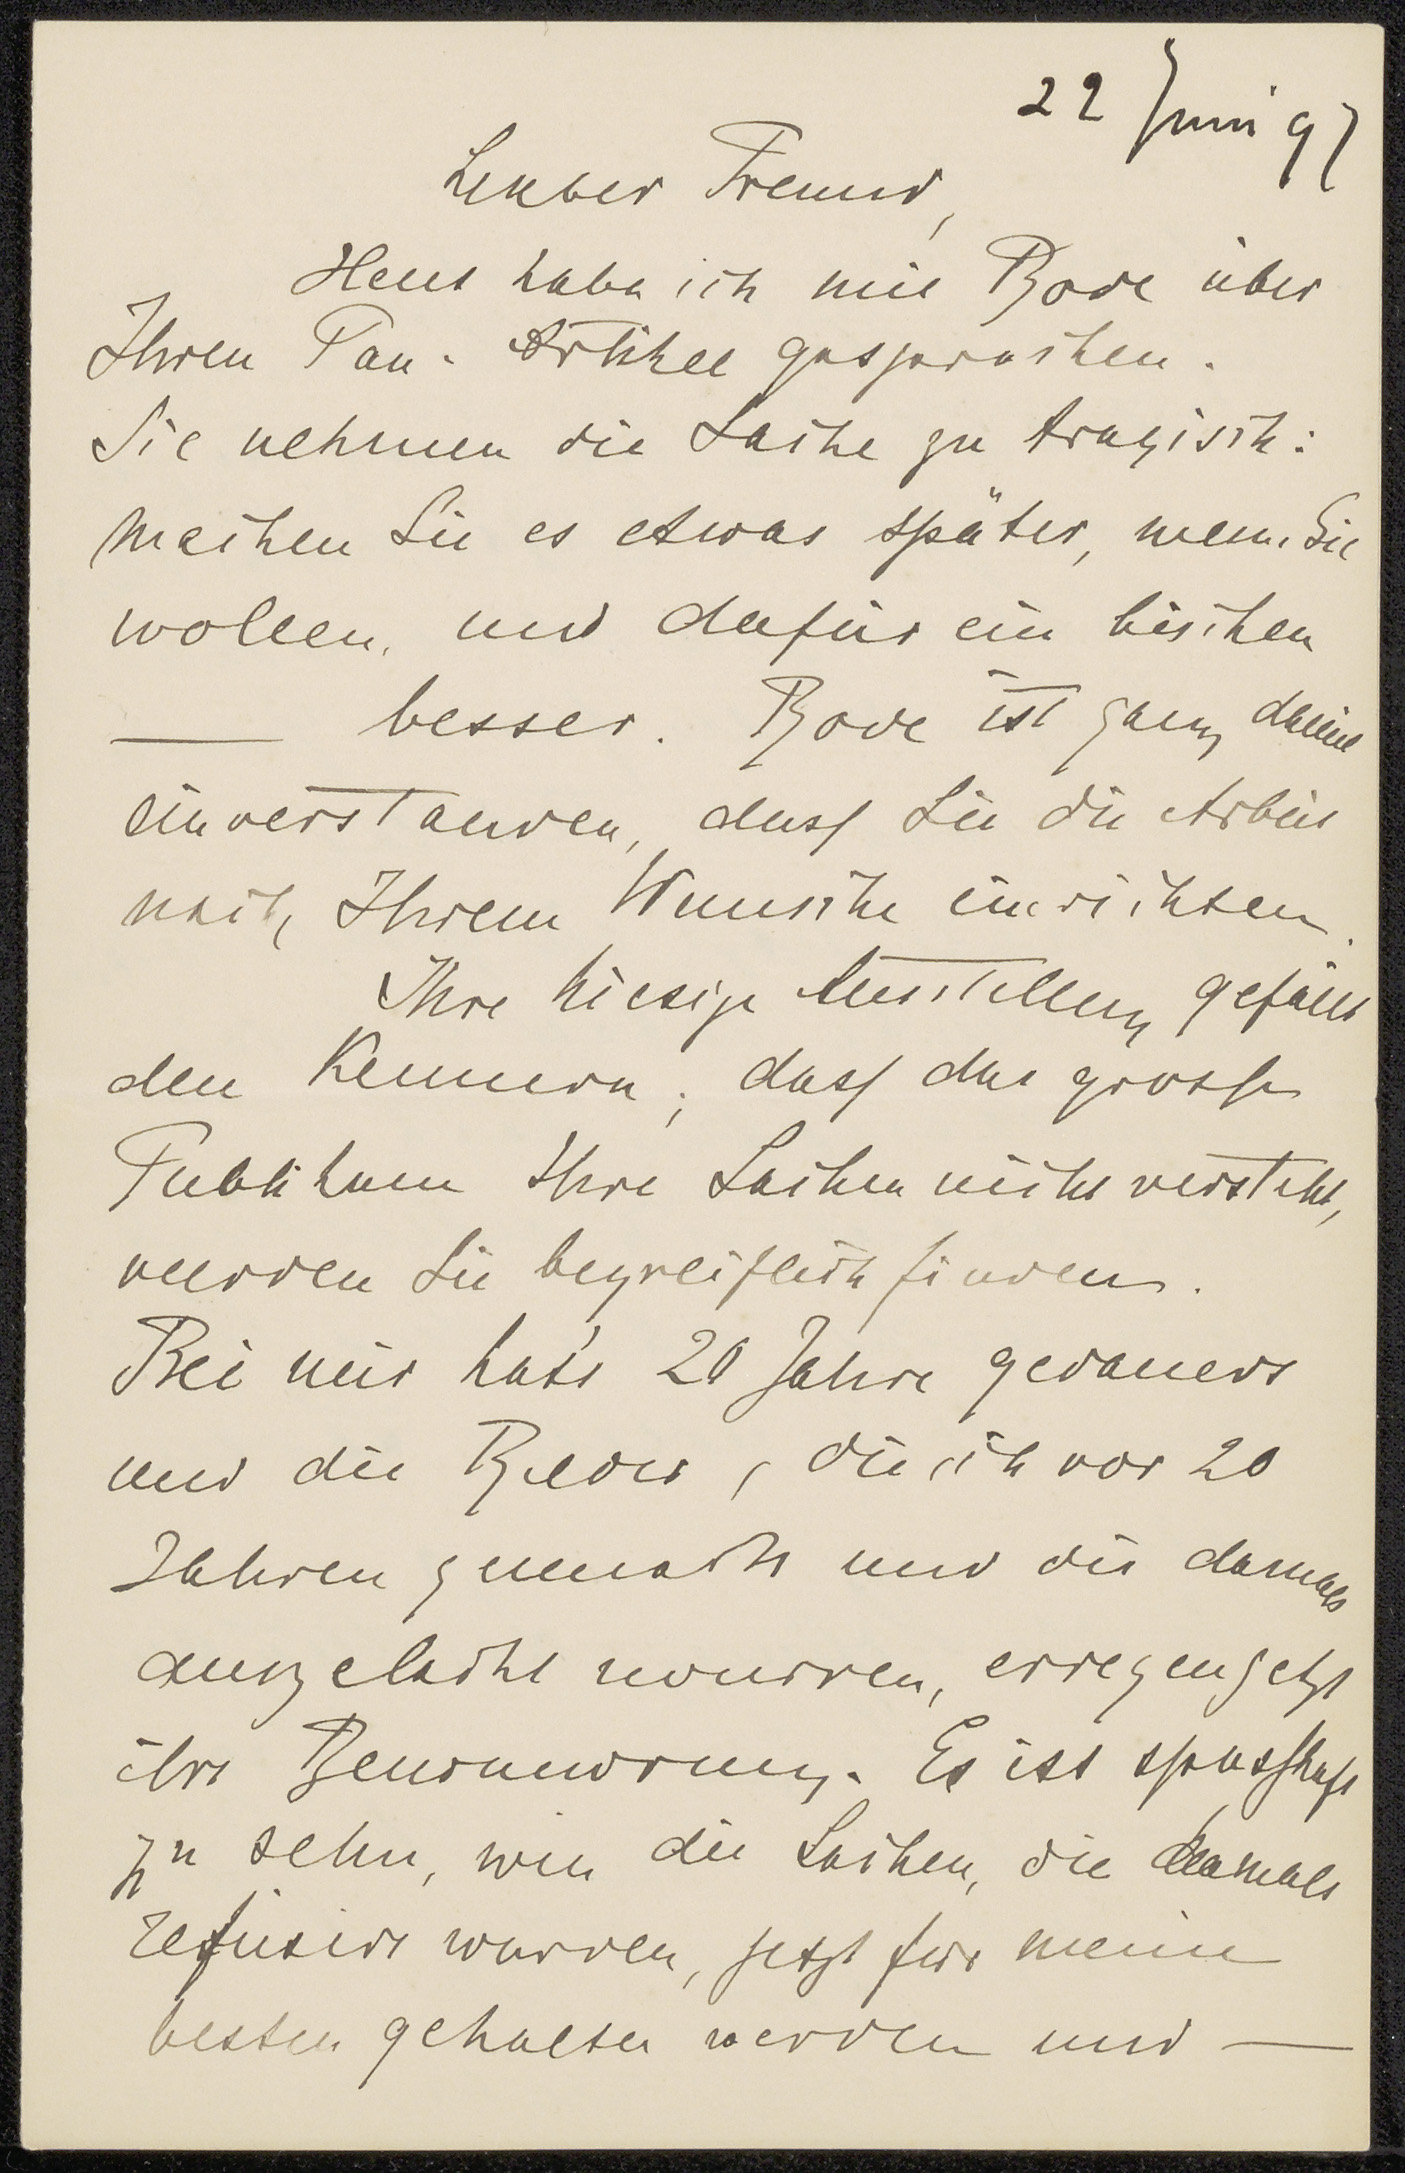 22 Juni 97
Lieber Freund,
Heut habe ich mit Bode über
Ihren Pan-Artikel gesprochen.
Sie nehmen die Sache zu tragisch:
machen Sie es etwas später, wenn Sie
wollen, und dafür ein bischen
— besser. Bode ist ganz damit
einverstanden, dass Sie die Arbeit
nach Ihrem Wunsche einrichten.
Ihre hiesige Ausstellung gefällt
den Kennern; dass das grosse
Publikum Ihre Sachen nicht versteht,
werden Sie begreiflich finden.
Bei mir hat's 20 Jahre gedauert
und die Bilder, die ich vor 20
Jahren gemacht und die damals
ausgelacht wurden, erregen jetzt
ihre Bewunderung. Es ist spasshaft
zu sehn, wie die Sachen, die damals
refüsirt wurden, jetzt für meine
besten gehalten werden und —